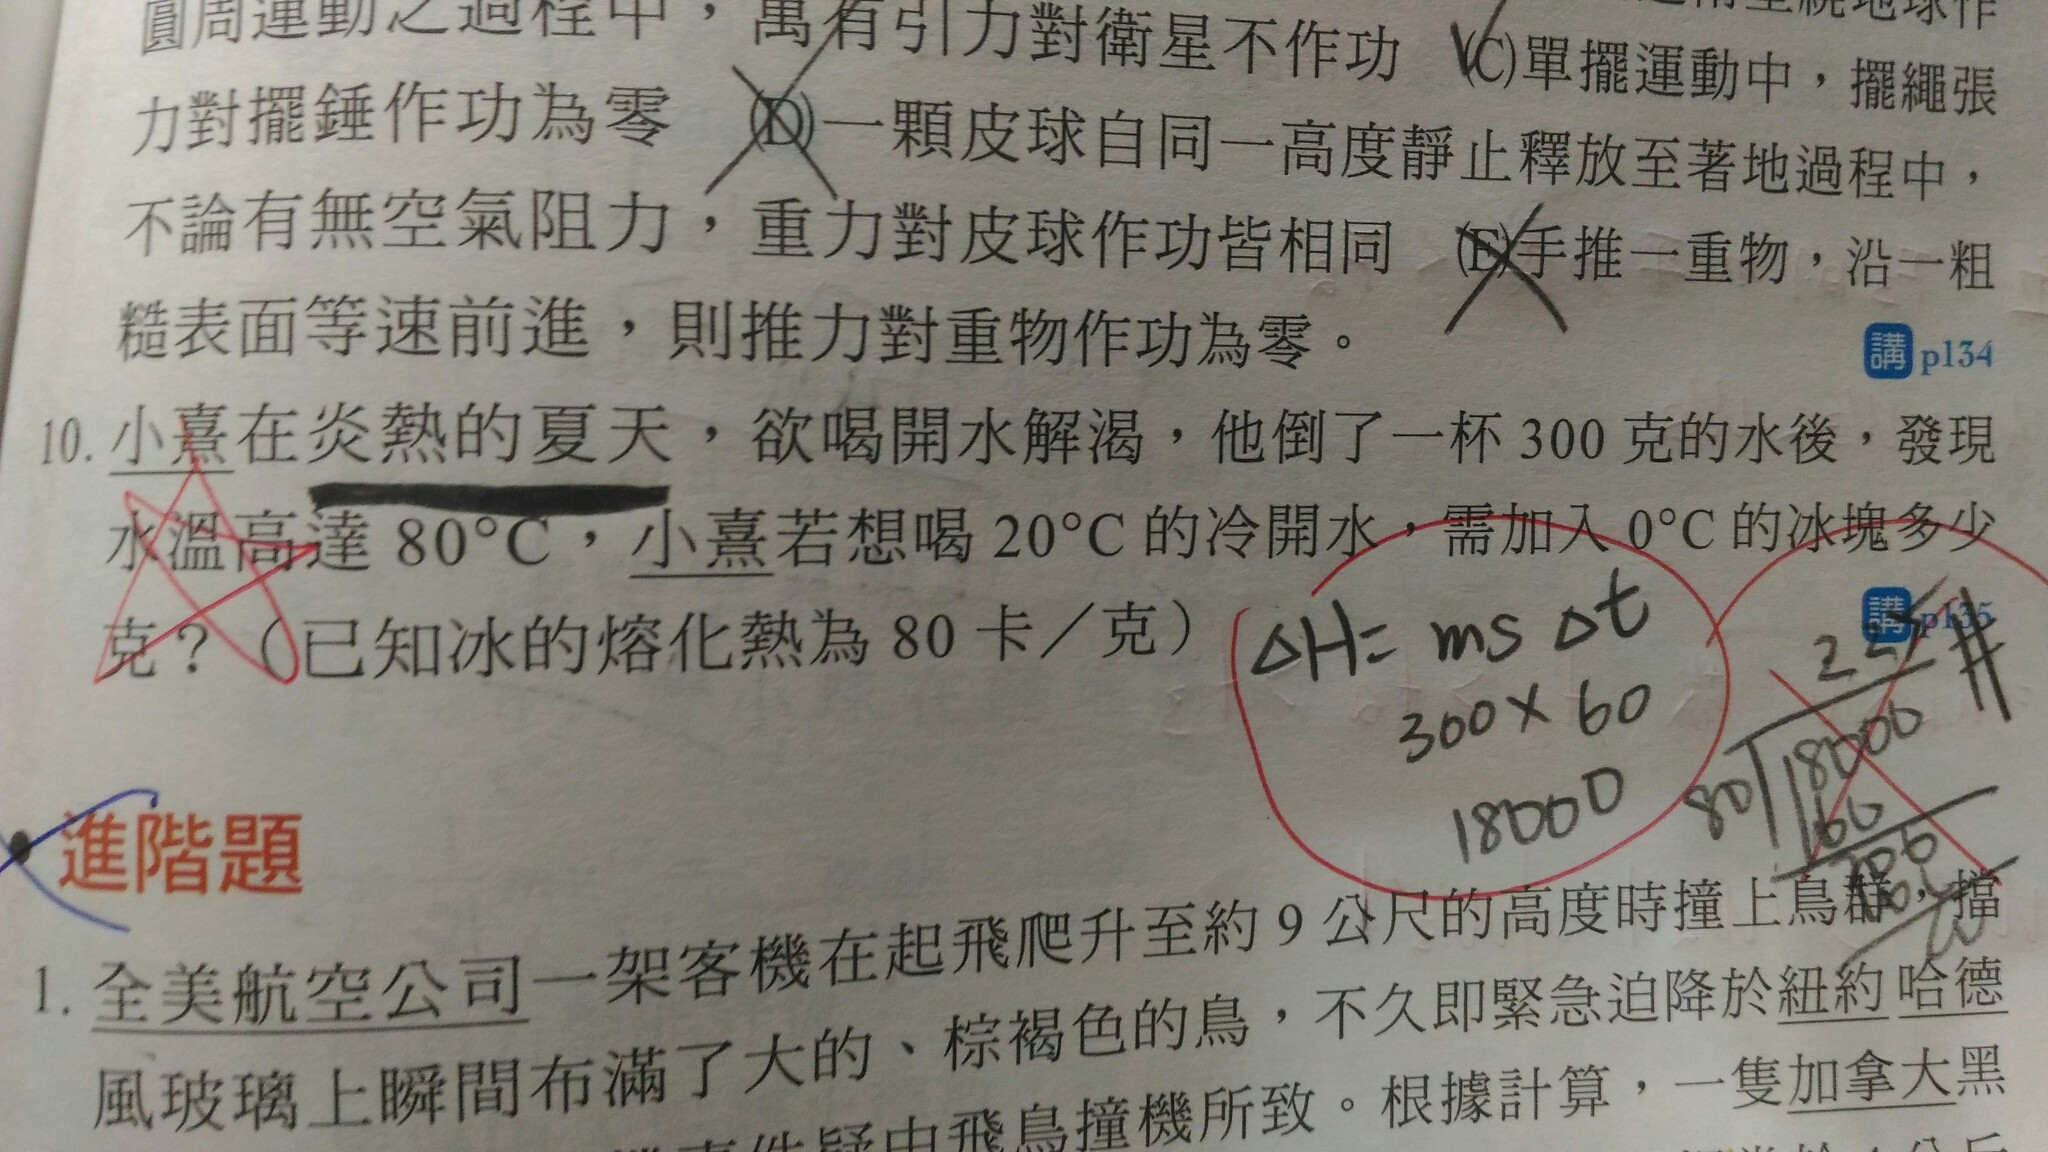 圓周運動之過程中，萬有引力對衛星不作功 (C)單擺運動中，擺繩張
力對擺錘作功為零 (D)一顆皮球自同一高度靜止釋放至著地過程中，
不論有無空氣阻力，重力對皮球作功皆相同 (E)手推一重物，沿一粗
糙表面等速前進，則推力對重物作功為零。
講 p134
10. 小熹在炎熱的夏天，欲喝開水解渴，他倒了一杯 300 克的水後，發現
水溫高達 80°C，小熹若想喝 20°C 的冷開水，需加入 0°C 的冰塊多少
克？（已知冰的熔化熱為 80 卡／克）
講 p135
ΔH= ms Δt
300×60
18000
225
80 18000
160
進階題
1. 全美航空公司一架客機在起飛爬升至約 9 公尺的高度時撞上鳥群，擋
風玻璃上瞬間布滿了大的、棕褐色的鳥，不久即緊急迫降於紐約哈德
飛鳥撞機所致。根據計算，一隻加拿大黑